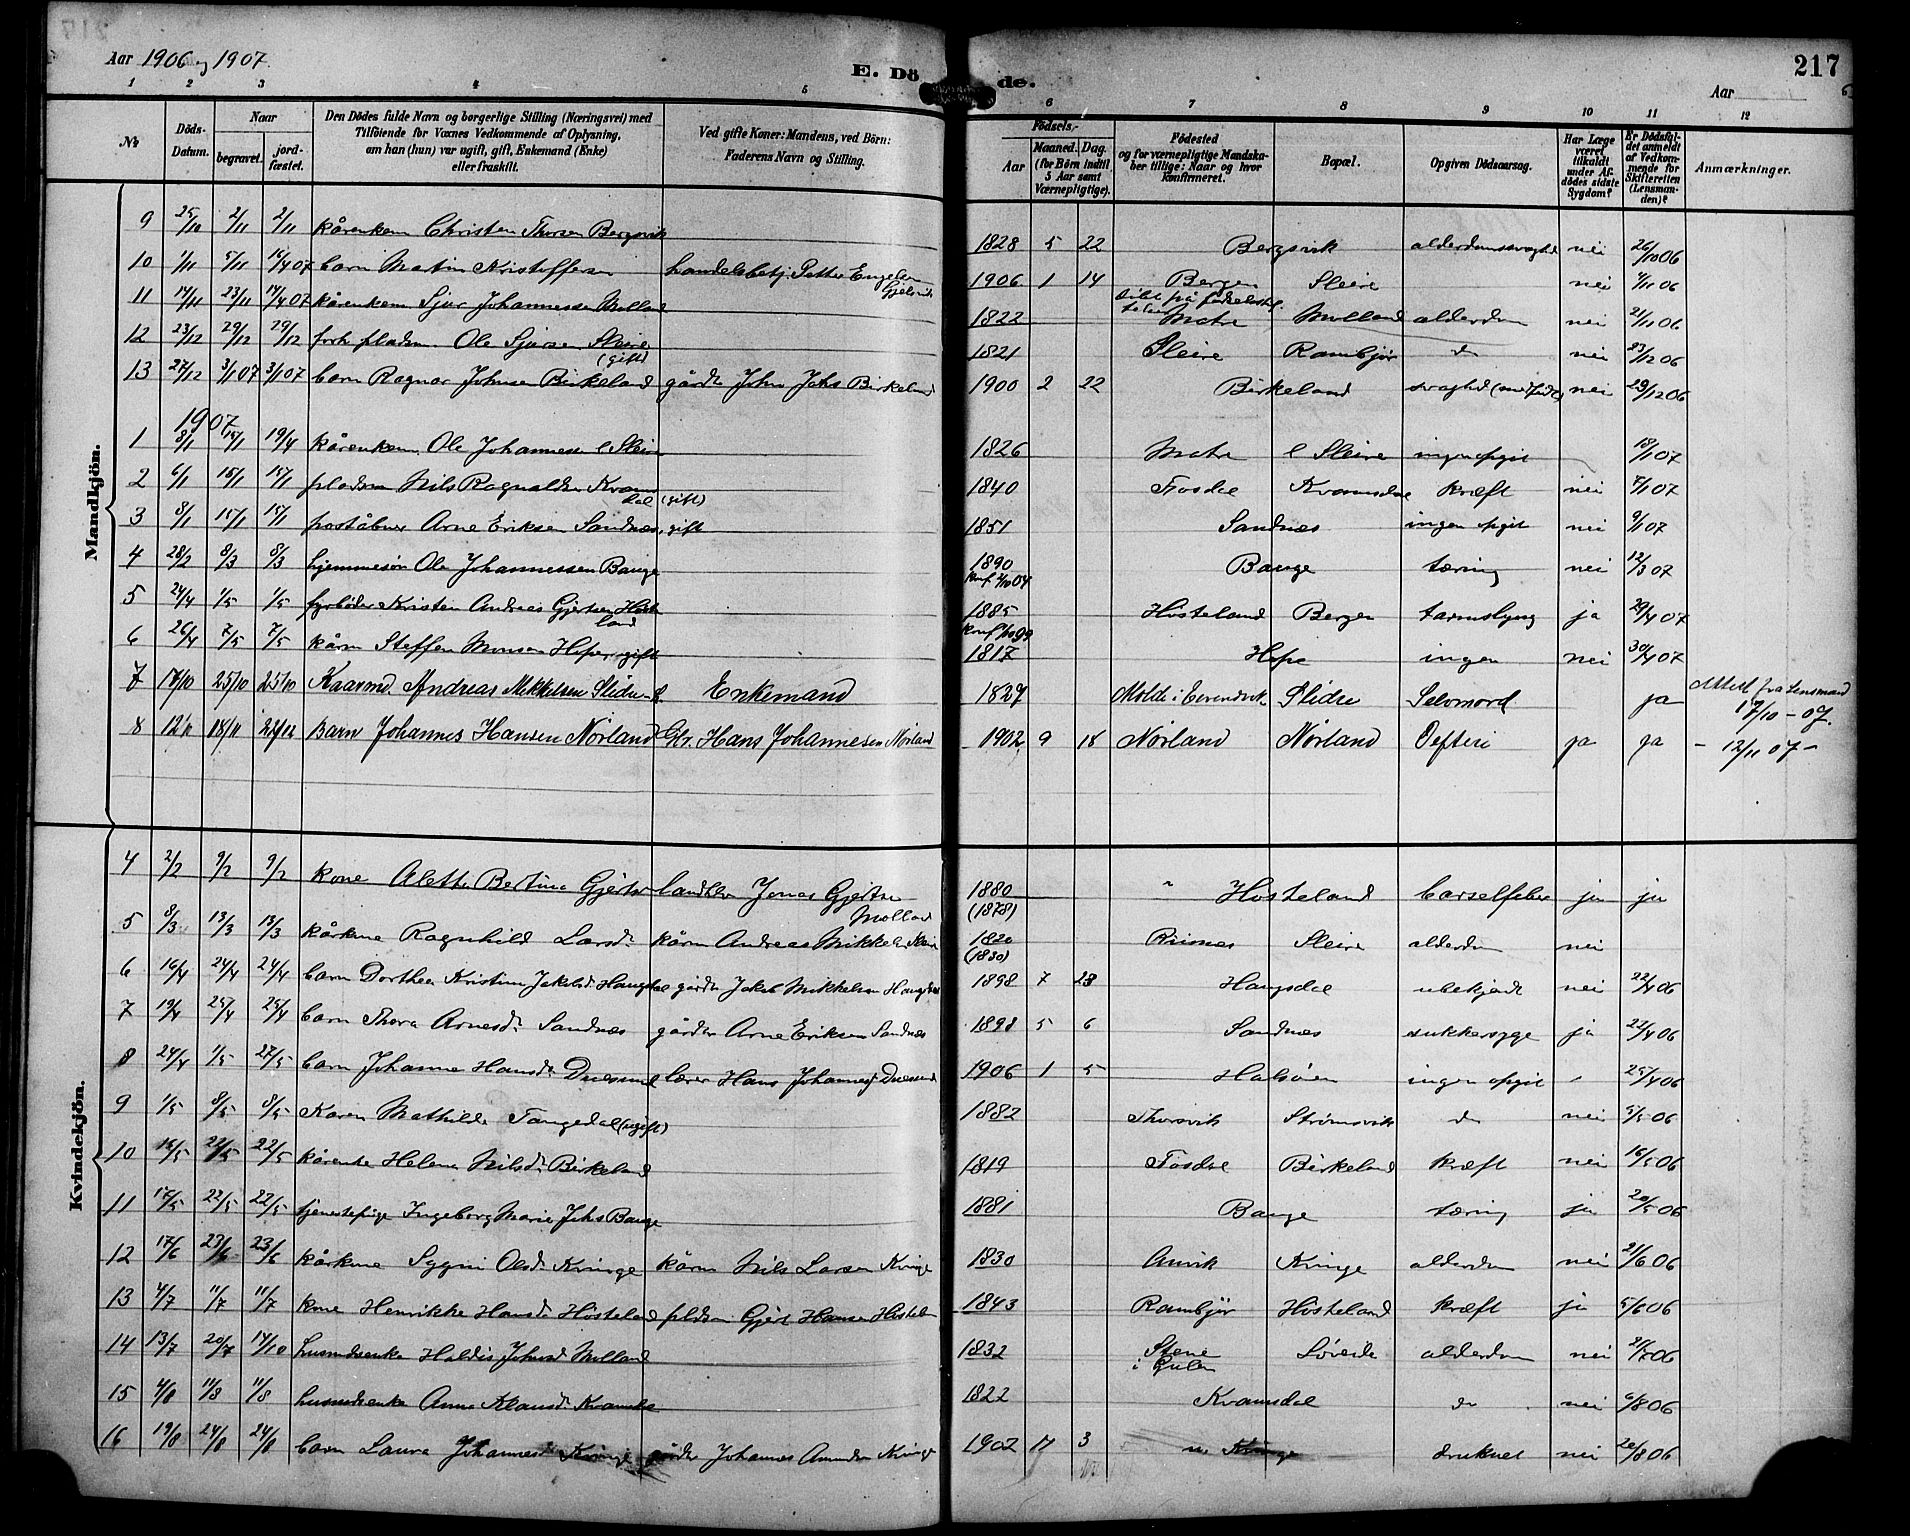 Aar 1906 og 1907.
E. Dö de.
217
Aar
1 2 3 4 5 6 7 8 9 10 11 12
№
Döds-Datum.
Naar
begravet.
jordfæstet.
Den Dödes fulde Navn og borgerlige Stilling (Næringsvei) med
Tilföiende for Vænes Vedkommende af Oplysning,
om han (hun) var ugift, gift, Enkemand (Enke)
eller fraskilt.
Ved gifte Koner: Mandens, ved Börn:
Faderens Navn og Stilling.
Födsels-
Aar
Maaned. Dag.
(for Börn indtil
5 Aar samt
Værnepligtige).
Födested
og for værnepligtige Mandska-
ber tillige: Naar og hvor
konfirmeret.
Bopæl.
Opgiven Dödsaarsag.
Har Læge
været
tilkaldt
under Af-
dödes sidste
Sygdom?
Er Dödsfal-
det anmeldt
af Vedkom-
mende for
Skifteretten
(Lensman-
den)?
Anmærkninger.
Mandkjön.
9 25/10 2/11 2/11 kårenkem Christen Thorsen Bergsvik 1828 5 22 Bergsvik alderdomssvaghed nei 26/10 06
10 1/11 5/11 14/4 07 barn Matin Kristoffersen handelsbetj. Petter Engelsen Gjelsvik 1906 1 14 Bergen Sleire nei 4/11 06
11 14/11 23/11 14/4 07 kårenkem Sjur Johannessen Molland 1822 Matre Molland alderdom nei 21/11 06
12 23/12 29/12 29/12 forh pladsm Ole Sjursen Sleire (gift) 1821 Sleire Rambjør do nei 23/12 06
13 27/12 3/1 07 3/1 07 barn Ragnar Johnsen Birkeland gårdb John Johs Birkeland 1900 2 22 Birkeland svaghed nei 29/12 06
1907
1 8/1 15/1 19/4 kårenkem. Ole Johannessen Sleire 1826 Matre Sleire ingen opgit 18/1 07
2 6/1 15/1 15/1 pladsm Nils Ragnaldsen Kvamsdal (gift) 1840 Fosdal Kvamsdal kræft nei 7/1 07
3 8/1 15/1 15/1 poståbner Arne Eriksen Sandnæs, gift 1851 Sandnæs ingen opgit nei 9/1 07
4 28/2 8/3 8/3 hjemmesøn Ole Johannessen Bauge 1890 Bauge tæring nei 12/3 07
konf 2/10 04
5 24/4 1/5 1/5 fyrbøder Kristen Andreas Gjertsen Hosteland 1885 Hosteland Bergen tarmslyng ja 29/4 07
6 26/4 7/5 7/5 kårm Steffen Monsen Hope, gift 1817 Hope ingen nei 30/4 07
7 17/10 25/10 25/10 Kaarmd. Andreas Mikkelsen Slidre Enkemand 1827 Molde i Evendvik Slidre Selvmord ja Attest fra Lensmand 17/10 - 07.
8 12/11 18/11 Barn Johannes Hansen Nørland Gbr. Hans Johannesen Nørland 1902 9 18 Nørland Nørland Difteri ja ja - 12/11 07 -
Kvindekjön.
4 2/2 9/2 9/2 kone Alette Bertine Gjertsen Jonas Gjertsen Molland 1880 (1878) " Hosteland barselfeber ja ja
5 8/3 13/3 13/3 kårkone Ragnhild Larsd. kårm Andreas Mikkelsen Sleire 1820 (1830) Riisnes Sleire alderdom nei
6 16/4 24/4 24/4 barn Dorthea Kristine Jakobsd. Haugsdal gårdb Jakob Mikkelsen Haugsdal 1898 7 23 Haugsdal ubekjendt nei 22/4 06
7 19/4 25/4 25/4 barn Thora Arnesd. Sandnæs gårdbr Arne Eriksen Sandnæs 1898 5 6 Sandnæs sukkersyge ja 22/4 06
8 24/4 1/5 27/5 barn Johanne Hansd. Duesund lærer Hans Johannes Duesund 1906 1 5 Halsøen ingen opgit 25/4 06
9 1/5 8/5 8/5 Karen Mathilde Tangedal (ugift) 1882 Thorsvik Strømsvik do nei 5/5 06
10 15/5 22/5 22/5 kårenke Helene Nilsd. Birkeland 1819 Fosdal Birkeland kræft nei 16/5 06
11 17/5 22/5 22/5 tjenestepige Ingeborg Marie Johs Bauge 1881 Bauge tæring ja 20/5 06
12 17/6 23/6 23/6 kårkone Sygni Olsd. Kvinge kårm Nils Larsen Kvinge 1830 Anvik Kvinge alderdom nei 21/6 06
13 4/7 11/7 11/7 kone Henrikke Hansd. Hosteland pladsm Gjert Hansen Hosteland 1843 Rambjør Hosteland kræft ja 5/6 06
14 13/7 20/7 14/10 husmdsenke Haldis Johnsd Molland 1832 Stene i Gulen Løveide alderdom nei 21/7 06
15 4/8 11/8 11/8 husmdsenke Anna Klausd. Kvamsdal 1822 Kvamsdal do nei 6/8 06
16 19/8 24/8 24/8 barn Laura Johannesd Kvinge gårdbr Johannes Amundsen Kvinge 1902 3 Kvinge druknet nei 20/8 06